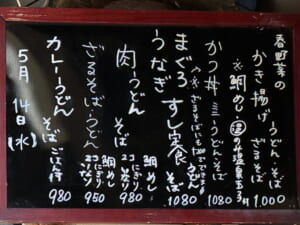 春野菜の
かき揚げ うどん・そば ざるそば 1,000
※鯛めし
かつ丼ミニうどん・そば 1080
※ざるそばにも
まぐろ
うなぎ すし定食 うどん そば 1080
肉うどん そば 鯛めし 2コいなり 2コにぎり 980
ざるそば・うどん 鯛めし 2コにぎり 2コいなり 950
カレーうどん そば ごはん付 980
5月14日(水)